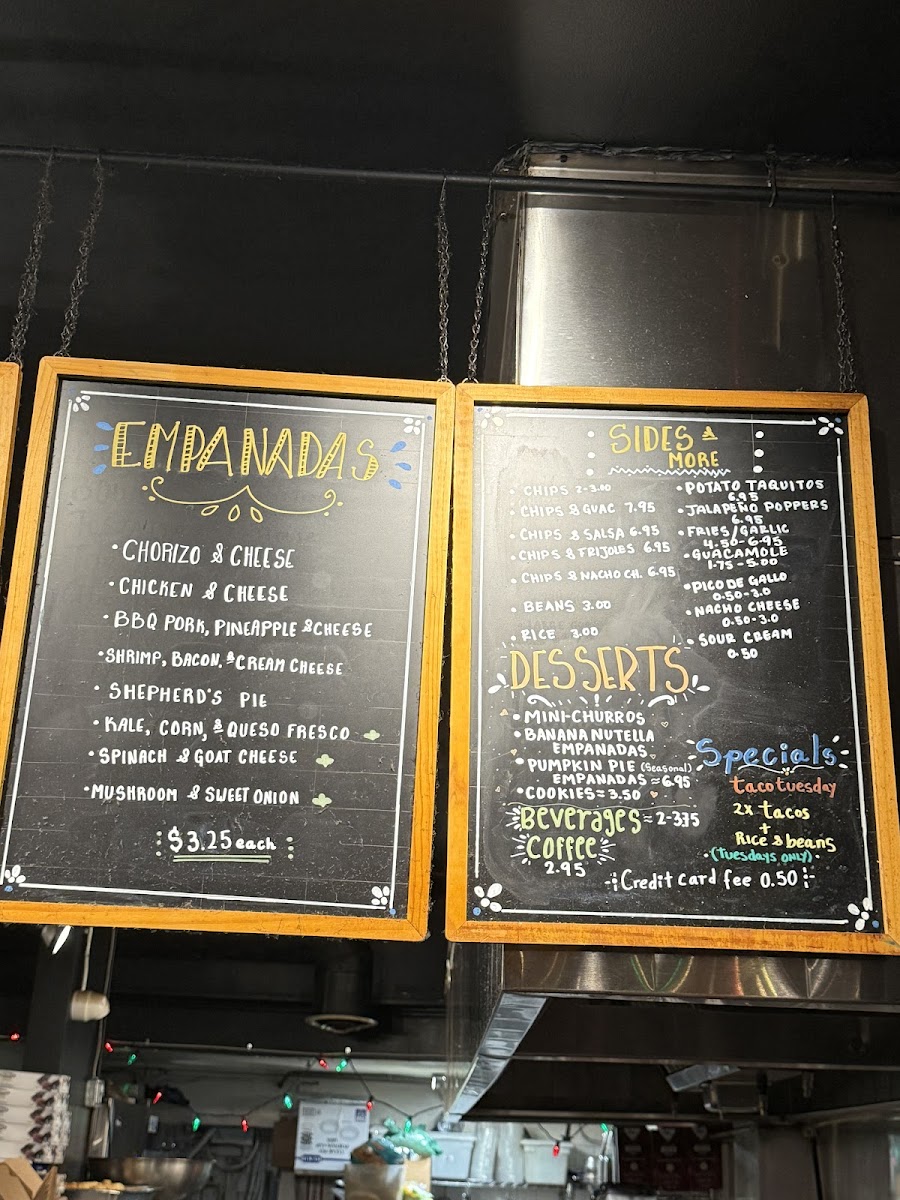 EMPANADAS
• CHORIZO & CHEESE
• CHICKEN & CHEESE
• BBQ PORK, PINEAPPLE & CHEESE
• SHRIMP, BACON, & CREAM CHEESE
• SHEPHERD'S PIE
• KALE, CORN, & QUESO FRESCO
• SPINACH & GOAT CHEESE
• MUSHROOM & SWEET ONION
$3.25 each
SIDES &
MORE
• CHIPS 2-3.00
• CHIPS & GUAC 7.95
• CHIPS & SALSA 6.95
• CHIPS & FRIJOLES 6.95
• CHIPS & NACHO CH. 6.95
• BEANS 3.00
• RICE 3.00
• POTATO TAQUITOS
6.95
• JALAPEÑO POPPERS
6.95
• FRIES/GARLIC
4.50-6.95
• GUACAMOLE
1.75-5.00
• PICO DE GALLO
0.50-3.0
• NACHO CHEESE
0.50-3.0
• SOUR CREAM
0.50
DESSERTS
• MINI-CHURROS
• BANANA NUTELLA
EMPANADAS
• PUMPKIN PIE (Seasonal)
EMPANADAS = 6.95
• COOKIES = 3.50
Beverages = 2-3.75
Coffee
2.95
Specials
taco tuesday
2x tacos
+
RICE & beans
(TUESDAYS ONLY)
Credit card fee 0.50